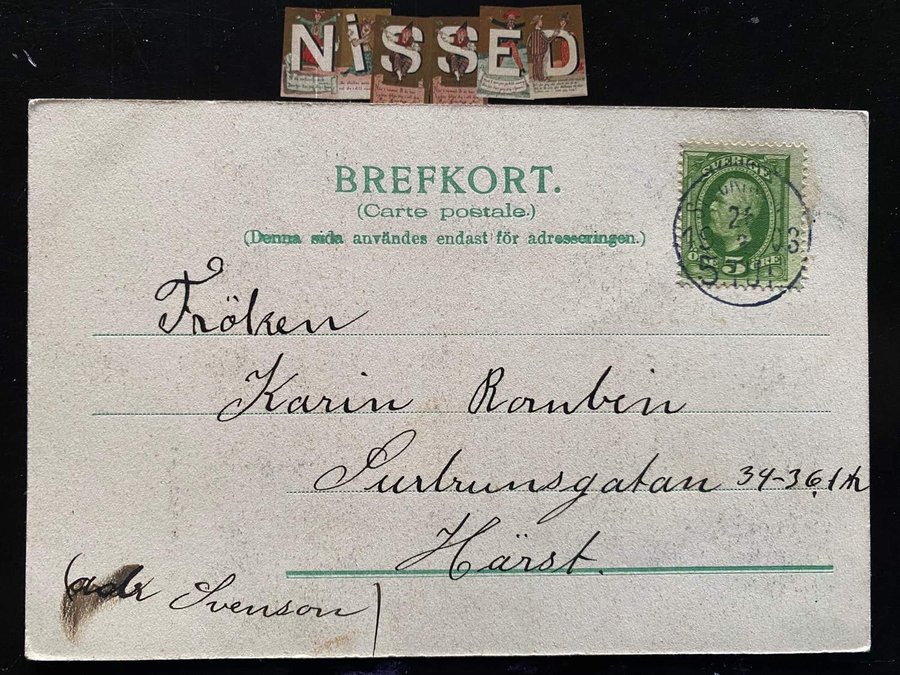 NiSSED
BREFKORT.
(Carte postale.)
(Denna sida användes endast för adresseringen.)
SVERIGE
24
19 03
5 ÖRE
Fröken
Karin Rambin
gatan 34-36, 1 tr
Härst.
(adr Svenson)